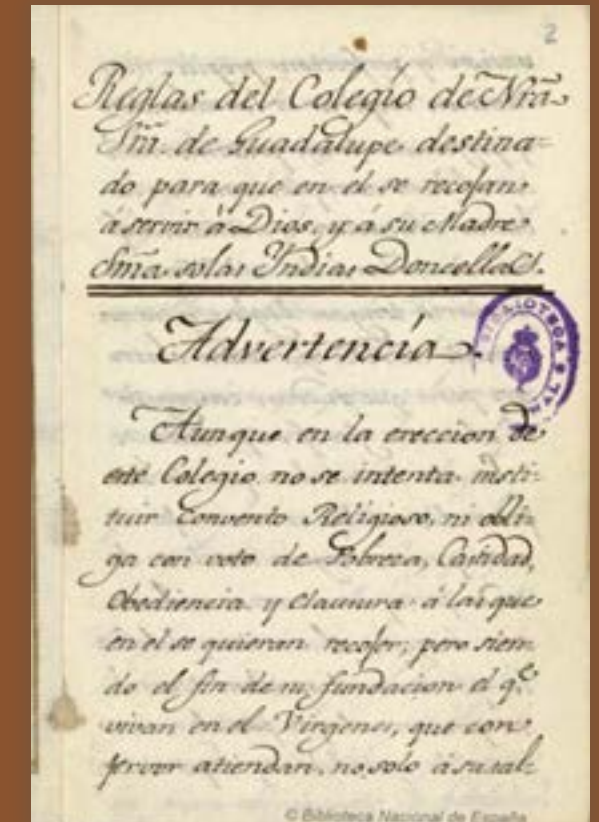 2
Reglas del Colegio de Nrã
Srã. de Guadalupe destina=
do para que en el se recojan
á servir à Dios, y á su Madre
Sma. solas Yndias Doncellas.
Advertencia.
Aunque en la ereccion de
este Colegio no se intenta insti-
tuir Convento Religioso, ni obli-
ga con voto de Pobreza, Castidad,
Obediencia y Clausura á las que
en el se quieran recojer; pero sien-
do el fin de su fundacion el q.e
vivan en el Virgenes, que con
fervor atiendan, no solo á su sal-
BIBLIOTECA
© Biblioteca Nacional de España